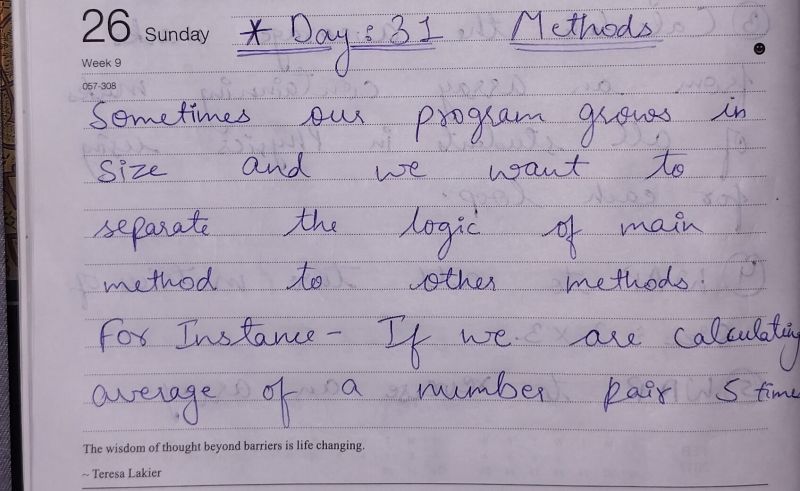 26 Sunday * Day: 31 Methods
Week 9
057-308
Sometimes our program grows in
size and we want to
separate the logic of main
method to other methods.
For Instance - If we are calculating
average of a number pair 5 time
The wisdom of thought beyond barriers is life changing.
~ Teresa Lakier